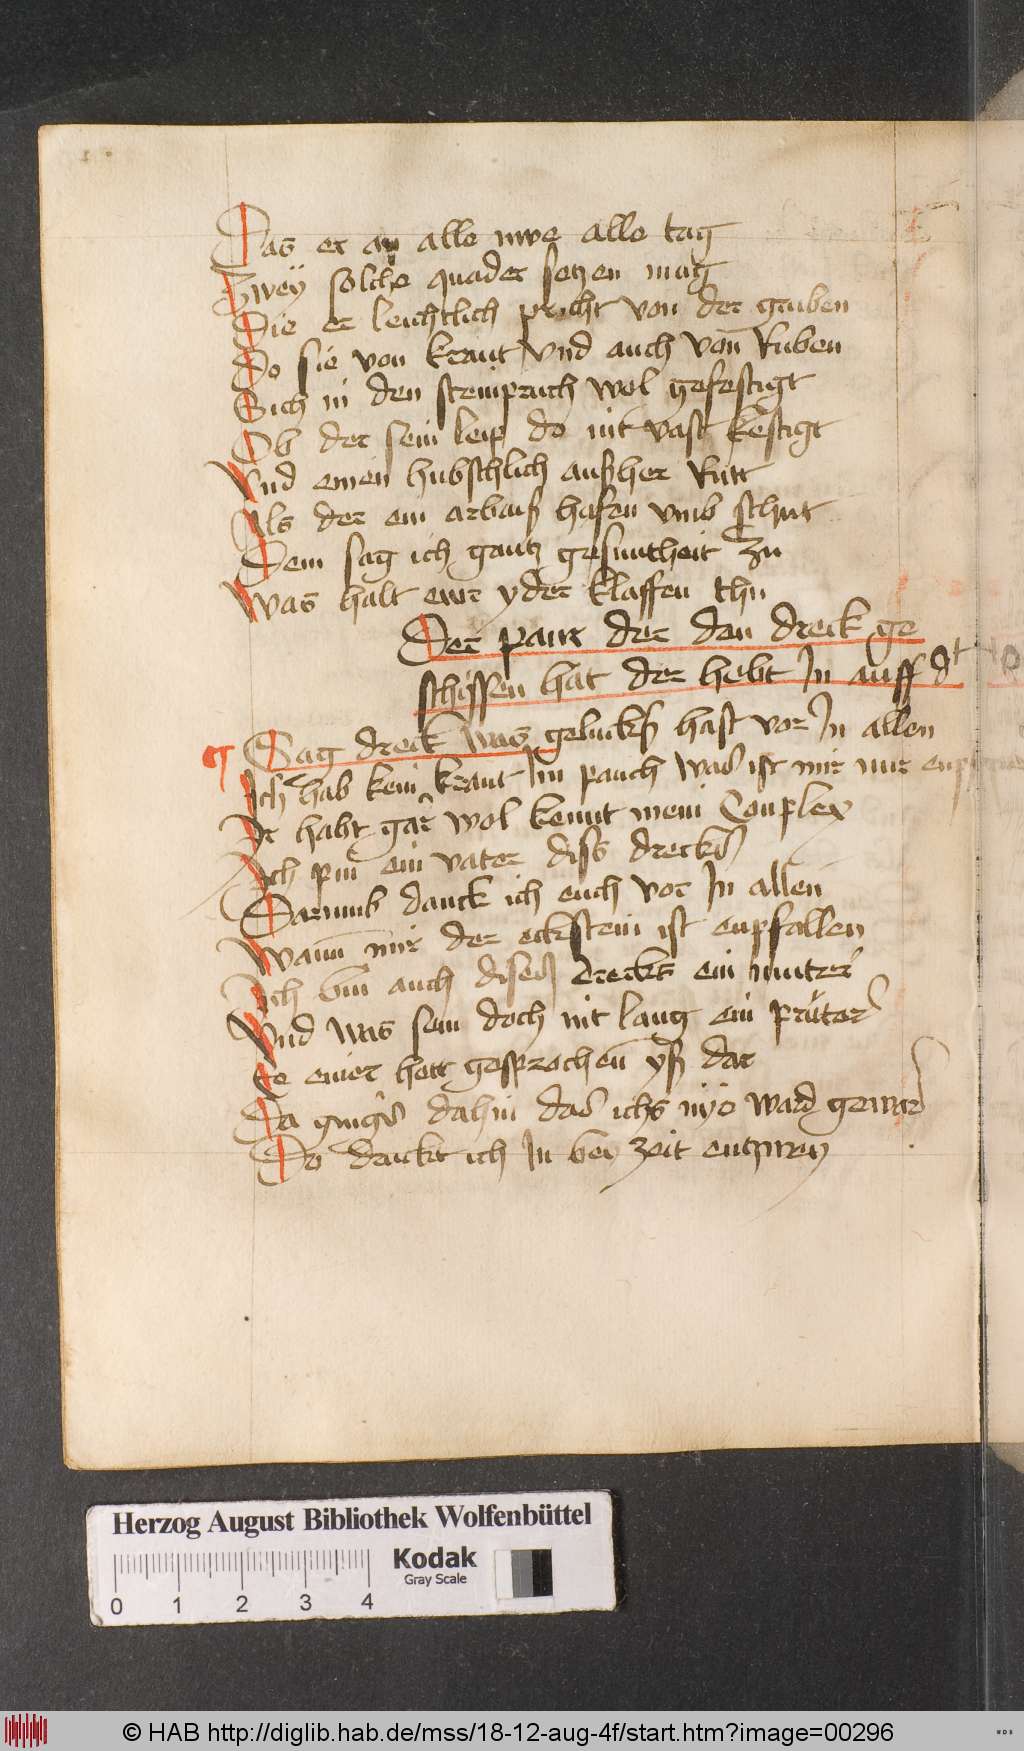 Das er an alle mwe alle tag
Zwey solche quader setzen mag
Die er leichtlich pricht von der gruben
Do sie von kraut vnd auch von Ruben
Sich in den steinpruch wol gefestigt
Ob der sein leip do nit vast kestigt
Vnd einen hubschlich außher Rutt
Als der ein arbaiß hafen vmb schut
Dem sag ich gantz gesuntheit zu
Was halt ewr yder klaffen thu
Der paur der den dreck ge
schissen hat der hebt In auff
Sag dreck was gelucks hast vor In allen
Ich hab kein kraut Im pauch was ist mir nur
Ir habt gar wol kennt mein Conplex
Ich pin ein vater diss drecks
Darumb danck ich euch vor In allen
Wann mir der eckstein ist enpfallen
Ich bin auch dises drecks ein muter
Vnd was sein doch nit lang ein pruter
Ee einer hett gesprochen yß dar
Da gings dahin das ichs nye ward gewar
Do druckt ich In bey zeit entzwey
Herzog August Bibliothek Wolfenbüttel
Kodak
Gray Scale
0 1 2 3 4
© HAB http://diglib.hab.de/mss/18-12-aug-4f/start.htm?image=00296